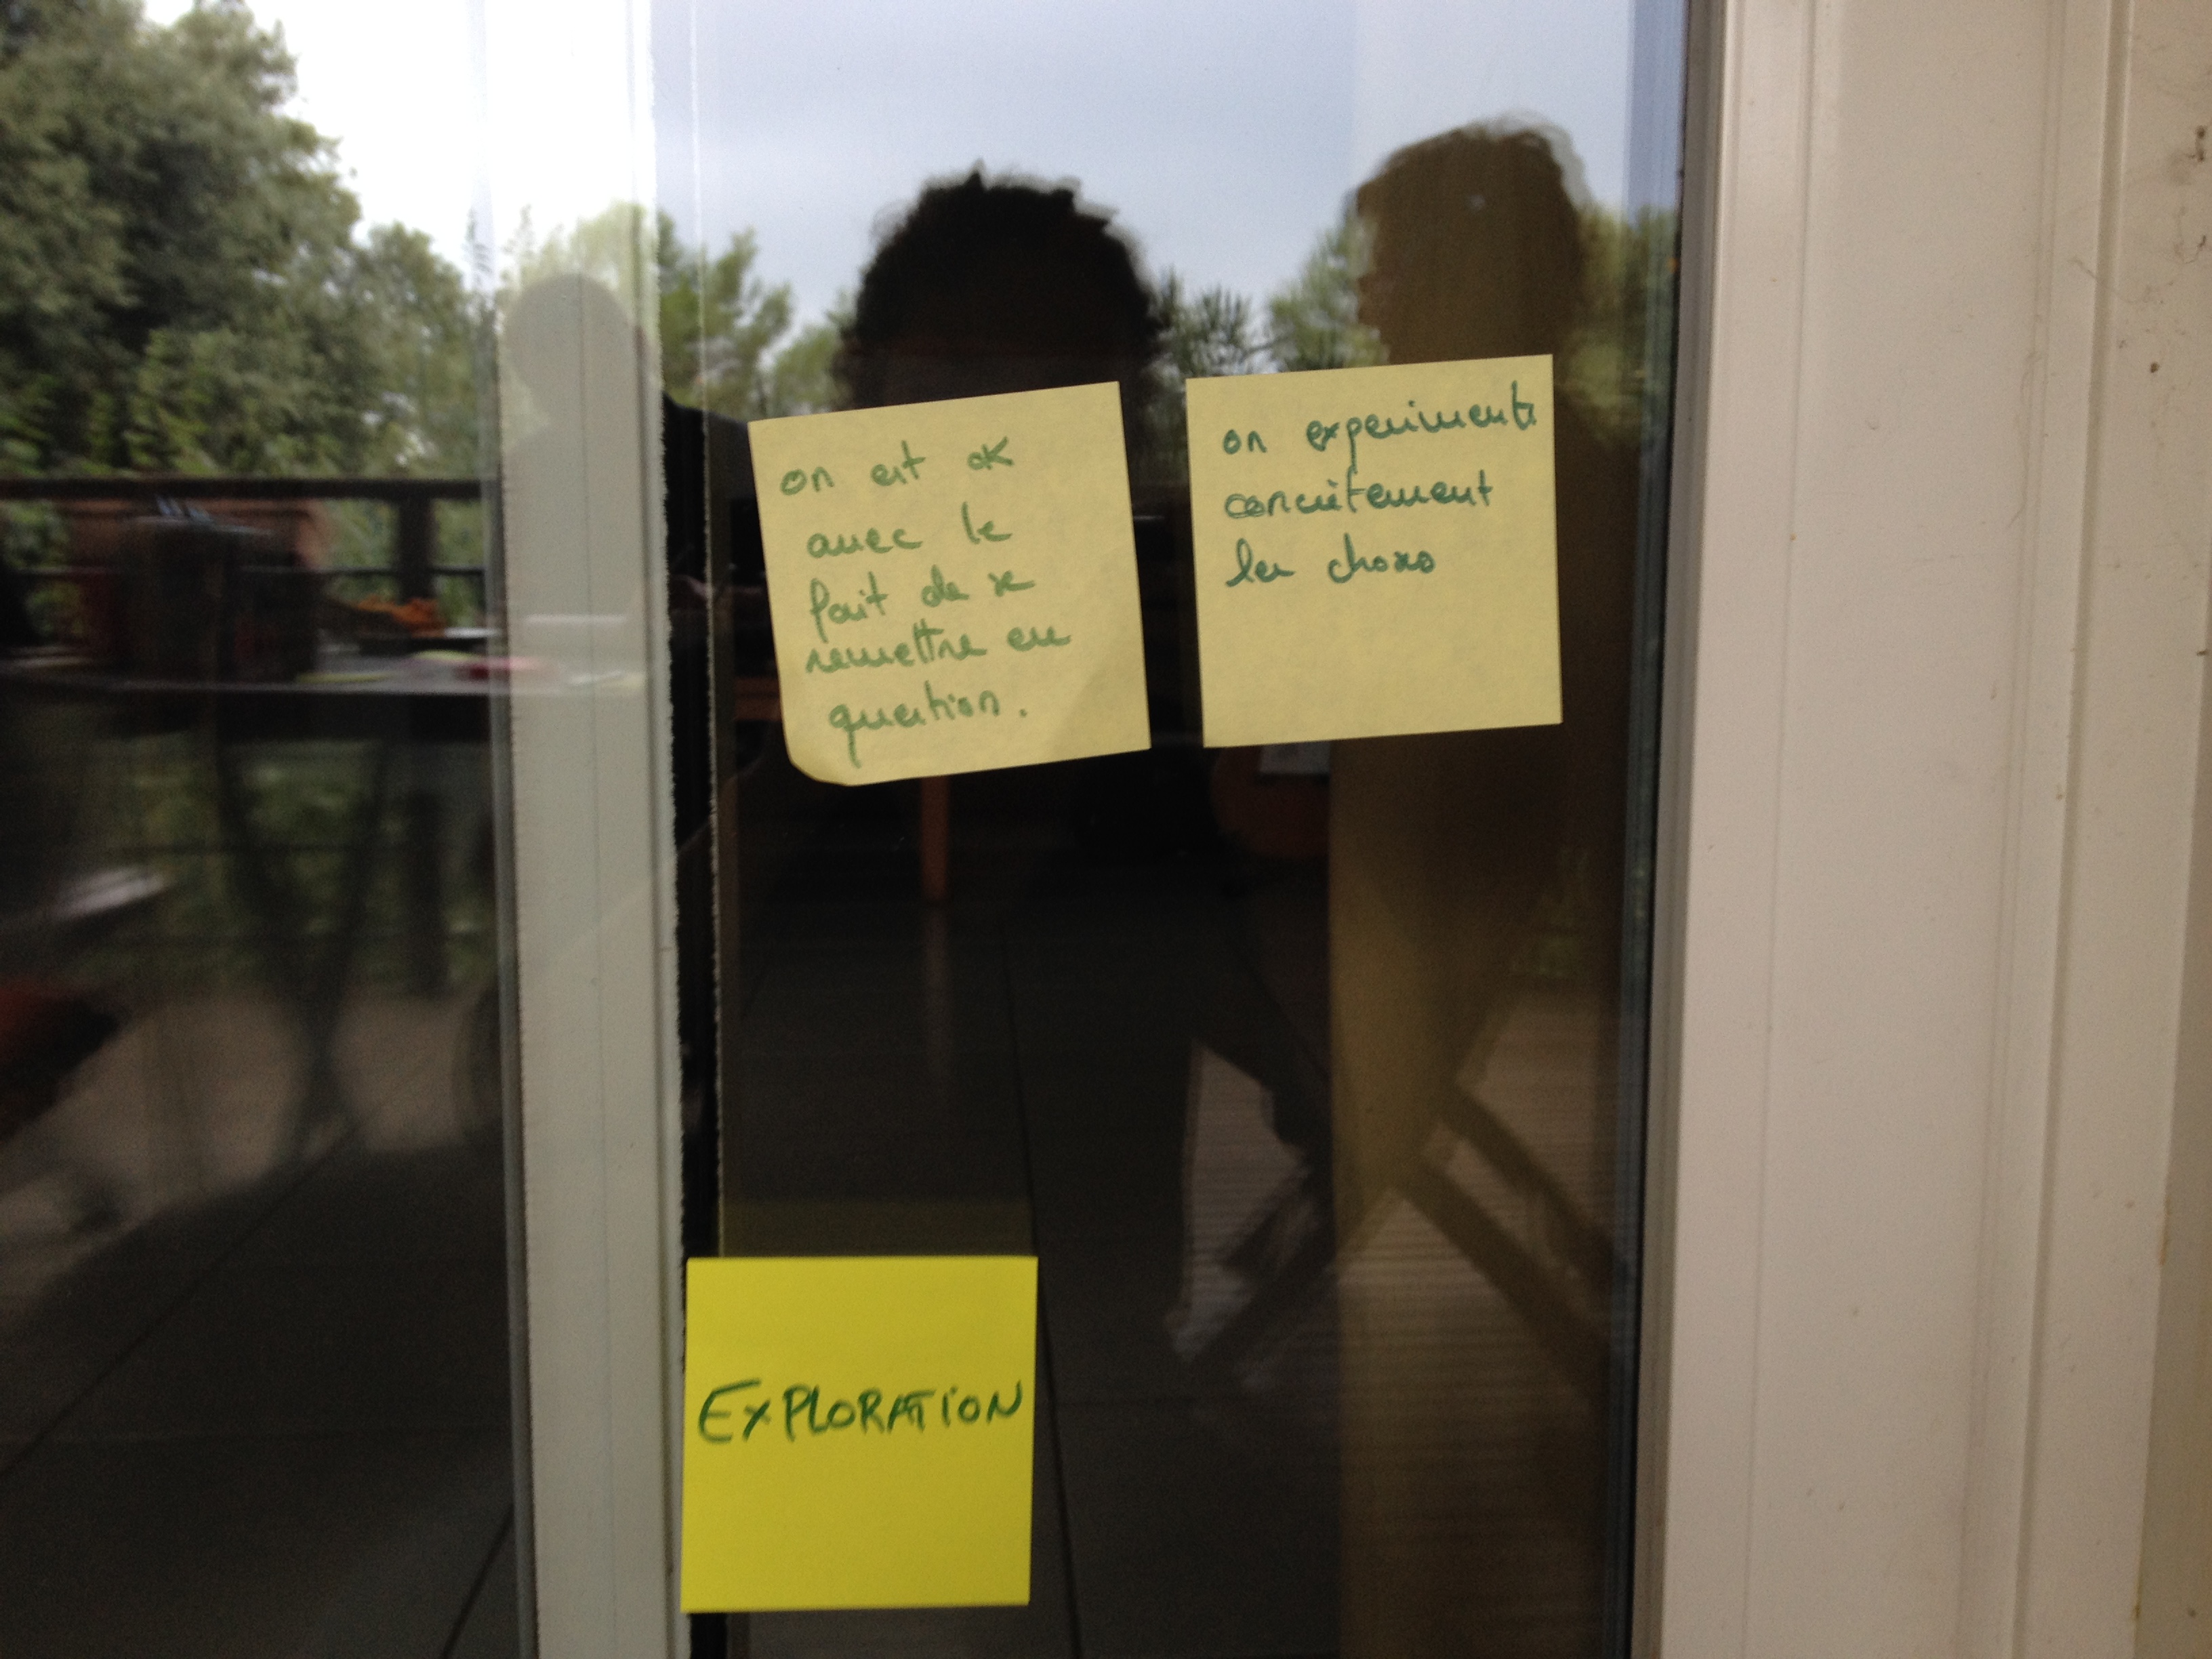 on est ok
avec le
fait de se
remettre en
question.
on expérimente
concrètement
les choses
EXPLORATION